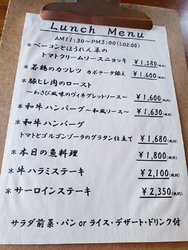 Lunch Menu
AM11:30~PM3:00(LO2:00)
*ベーコンとほうれん草の
トマトクリームソースニョッキ ¥1,580(税込)
*若鶏のカツレツ カポナータ添え ¥1,600
*豚ヒレ肉のロースト
~わさび風味のヴィネグレットソース~ ¥1,600(税込)
*和牛ハンバーグ ~和風ソース~ ¥1,630(税込)
*和牛ハンバーグ
トマトとゴルゴンゾーラのグラタン仕立て ¥1,680(税込)
*本日の魚料理 ¥1,800(税込)
*牛ハラミステーキ ¥2,100(税込)
*サーロインステーキ ¥2,350(税込)
サラダ前菜・パンorライス・デザート・ドリンク付